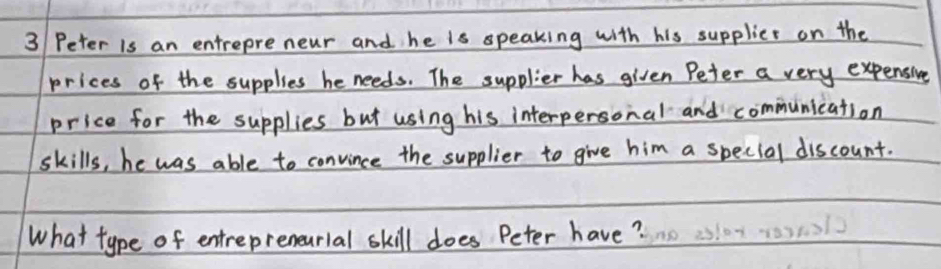 3 Peter is an entrepreneur and he is speaking with his supplier on the
prices of the supplies he needs. The supplier has given Peter a very expensive
price for the supplies but using his interpersonal and communication
skills, he was able to convince the supplier to give him a special discount.
What type of entrepreneurial skill does Peter have?